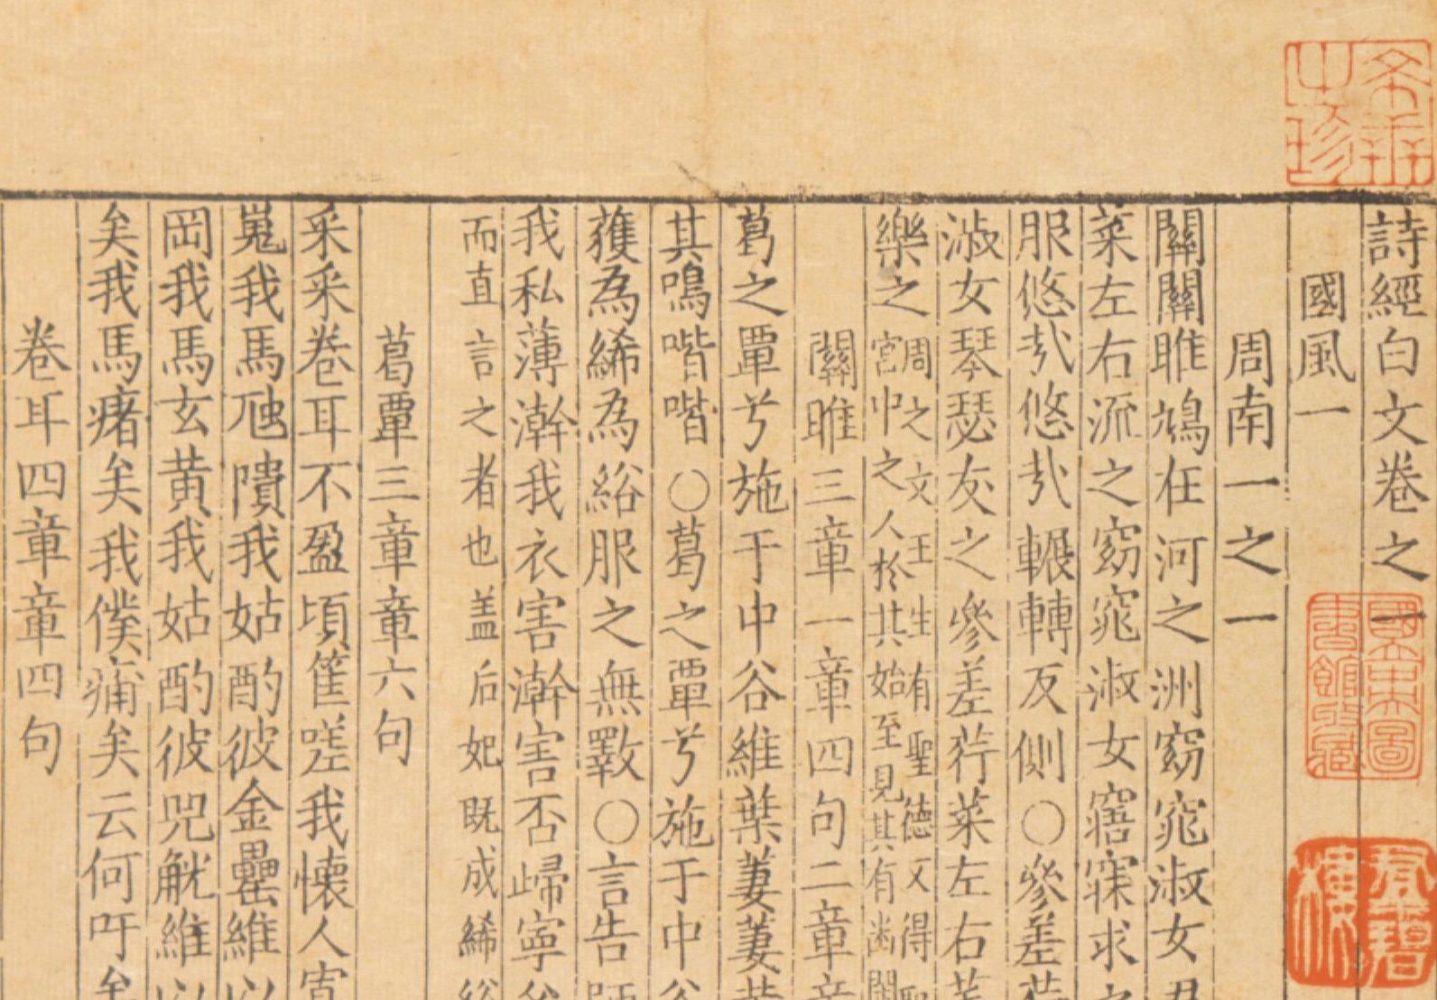 詩經白文卷之一
國風一
周南一之一
關關雎鳩在河之洲窈窕淑女君
菜左右流之窈窕淑女寤寐求之
服悠哉悠哉輾轉反側○參差荇
淑女琴瑟友之參差荇菜左右芼
樂之
周之文王生有聖德又得聖
宮中之人於其始至見其有幽閒
關雎三章一章四句二章章
葛之覃兮施于中谷維葉萋萋黃
其鳴喈喈○葛之覃兮施于中谷
濩為絺為綌服之無斁○言告師
我私薄澣我衣害澣害否歸寧父
而直言之者也盖后妃既成絺綌
葛覃三章章六句
采采卷耳不盈頃筐嗟我懷人寘
嵬我馬虺隤我姑酌彼金罍維以
岡我馬玄黃我姑酌彼兕觥維以
矣我馬瘏矣我僕痡矣云何吁矣
卷耳四章章四句
希世之珍
國立中央圖書館收藏